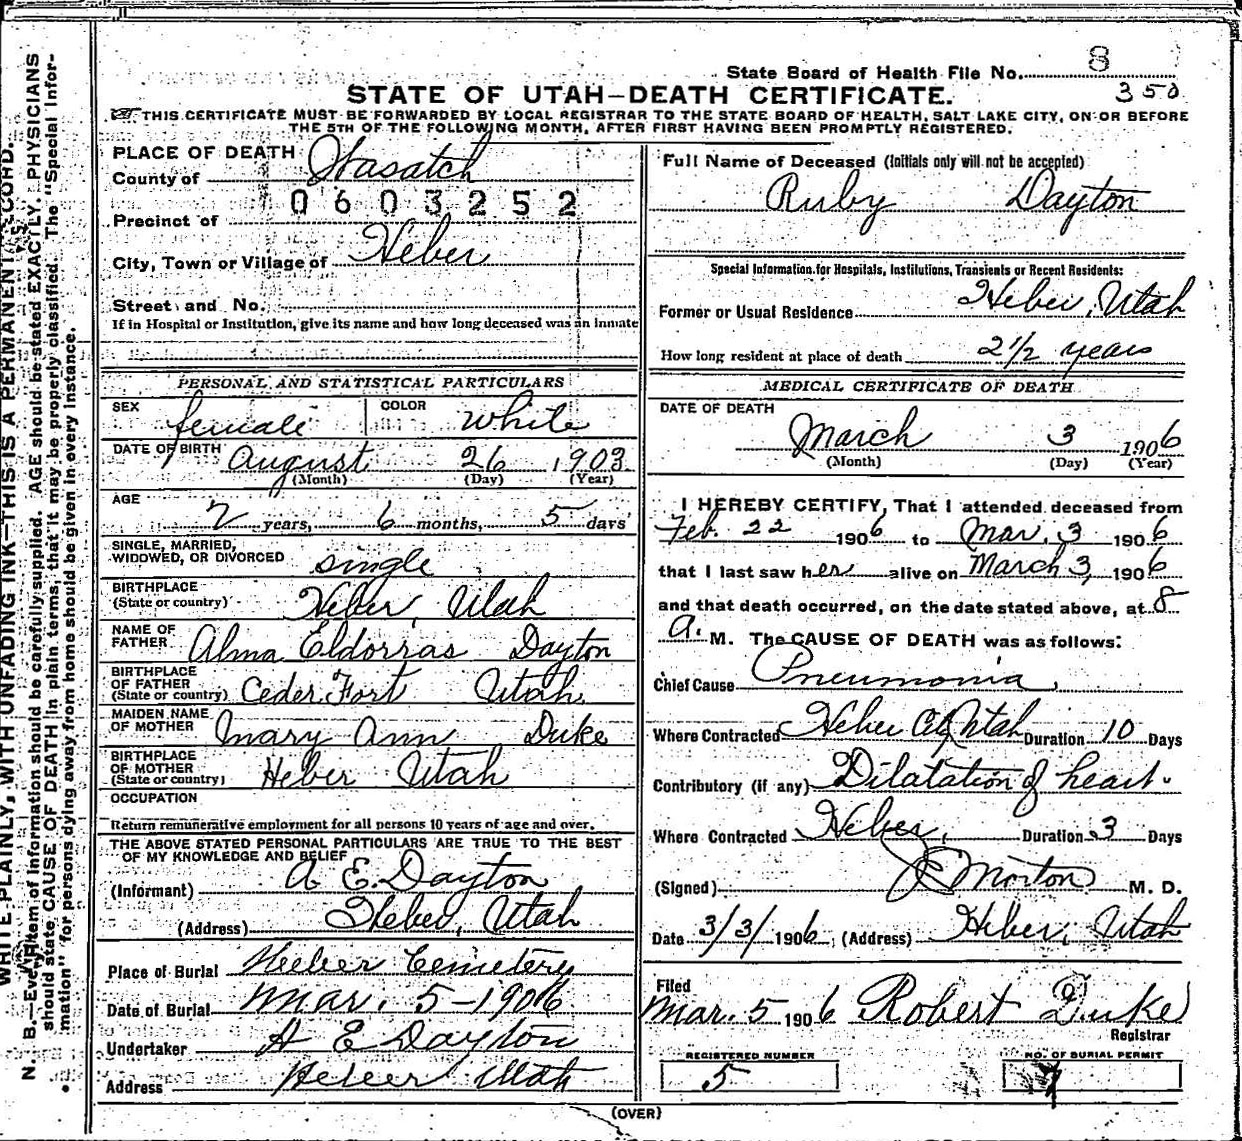 State Board of Health File No. 8
350
STATE OF UTAH—DEATH CERTIFICATE.
THIS CERTIFICATE MUST BE FORWARDED BY LOCAL REGISTRAR TO THE STATE BOARD OF HEALTH, SALT LAKE CITY, ON OR BEFORE
THE 5TH OF THE FOLLOWING MONTH, AFTER FIRST HAVING BEEN PROMPTLY REGISTERED.
PLACE OF DEATH
County of Wasatch
0603252
Precinct of
City, Town or Village of Heber
Street and No.
If in Hospital or Institution, give its name and how long deceased was an inmate
PERSONAL AND STATISTICAL PARTICULARS
SEX female COLOR White
DATE OF BIRTH August 26, 1903
(Month) (Day) (Year)
AGE
2 years, 6 months, 5 days
SINGLE, MARRIED,
WIDOWED, OR DIVORCED single
BIRTHPLACE
(State or country) Heber, Utah
NAME OF
FATHER Alma Eldorras Dayton
BIRTHPLACE
OF FATHER
(State or country) Ceder Fort Utah.
MAIDEN NAME
OF MOTHER Mary Ann Duke
BIRTHPLACE
OF MOTHER
(State or country) Heber Utah
OCCUPATION
Return remunerative employment for all persons 10 years of age and over.
THE ABOVE STATED PERSONAL PARTICULARS ARE TRUE TO THE BEST
OF MY KNOWLEDGE AND BELIEF
(Informant) A E. Dayton
(Address) Heber, Utah
Place of Burial Heber Cemetery
Date of Burial Mar. 5-1906
Undertaker A E Dayton
Address Heber Utah
Full Name of Deceased (Initials only will not be accepted)
Ruby Dayton
Special Information for Hospitals, Institutions, Transients or Recent Residents:
Former or Usual Residence Heber, Utah
How long resident at place of death 2 1/2 years
MEDICAL CERTIFICATE OF DEATH
DATE OF DEATH
March 3 1906
(Month) (Day) (Year)
I HEREBY CERTIFY, That I attended deceased from
Feb. 22 1906 to Mar. 3 1906
that I last saw her alive on March 3, 1906
and that death occurred, on the date stated above, at 8
a. M. The CAUSE OF DEATH was as follows:
Chief Cause Pneumonia
Where Contracted Heber City Utah Duration 10 Days
Contributory (if any) Dilatation of heart.
Where Contracted Heber, Duration 3 Days
(Signed) Morton M. D.
Date 3/3/1906 (Address) Heber, Utah
Filed
Mar. 5 1906 Robert Duke
Registrar
REGISTERED NUMBER
5
NO. OF BURIAL PERMIT
(OVER)
WRITE PLAINLY, WITH UNFADING INK—THIS IS A PERMANENT RECORD.
N. B.—Every item of information should be carefully supplied. AGE should be stated EXACTLY. PHYSICIANS
should state CAUSE OF DEATH in plain terms, that it may be properly classified. The "Special Infor-
mation" for persons dying away from home should be given in every instance.